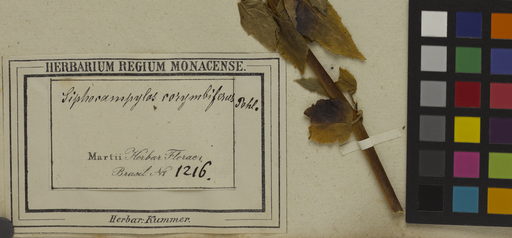 HERBARIUM REGIUM MONACENSE.
Siphocampylos corymbiferus Pohl.
Martii Herbar. Florae
Brasil. No 1216.
Herbar. Kummer.